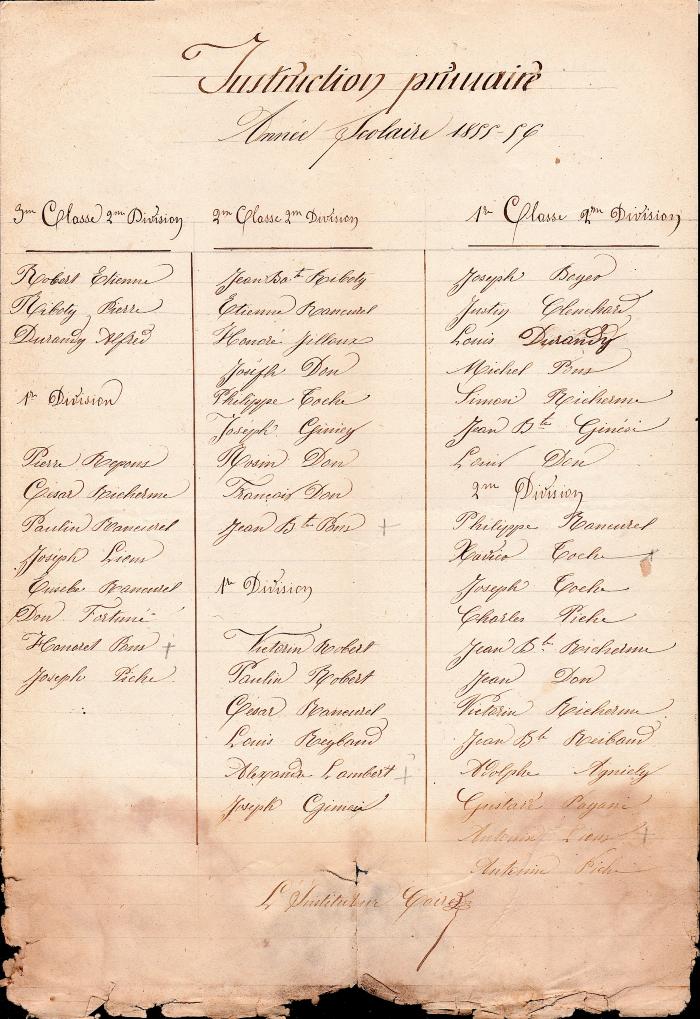 Instruction primaire
Année Scolaire 1855-56
3me Classe 2me Division
Robert Etienne
Riboty Pierre
Durandy Alfred
1re Division
Pierre Repous
César Richerme
Paulin Rancurel
Joseph Lions
Eusebe Rancurel
Don Fortuné
Honoret Pons +
Joseph Piche
2me Classe 2me Division
Jean Bat Riboty
Etienne Rancurel
Honoré Jilloux
Joséph Don
Philippe Toche
Joseph Giniey
Rosin Don
Français Don
Jean Bte Pons +
1re Division
Victorin Robert
Paulin Robert
César Rancurel
Louis Reybaud
Alexandre Lambert +
Joseph
1re Classe 2me Division
Joseph Boyer
Justin Clenchard
Louis Durandy
Michel Pons
Simon Richerme
Jean Bte Ginési
Louis Don
2me Division
Philippe Rancurel
Xavier Toche +
Joseph Toche
Charles Piche
Jean Bte Richerme
Jean Don
Victorin Richerme
Jean Bte Reibaud
Adolphe Agniely
Gustave Pagani
Antonin Lions +
Antonin Piche
L'Instituteur